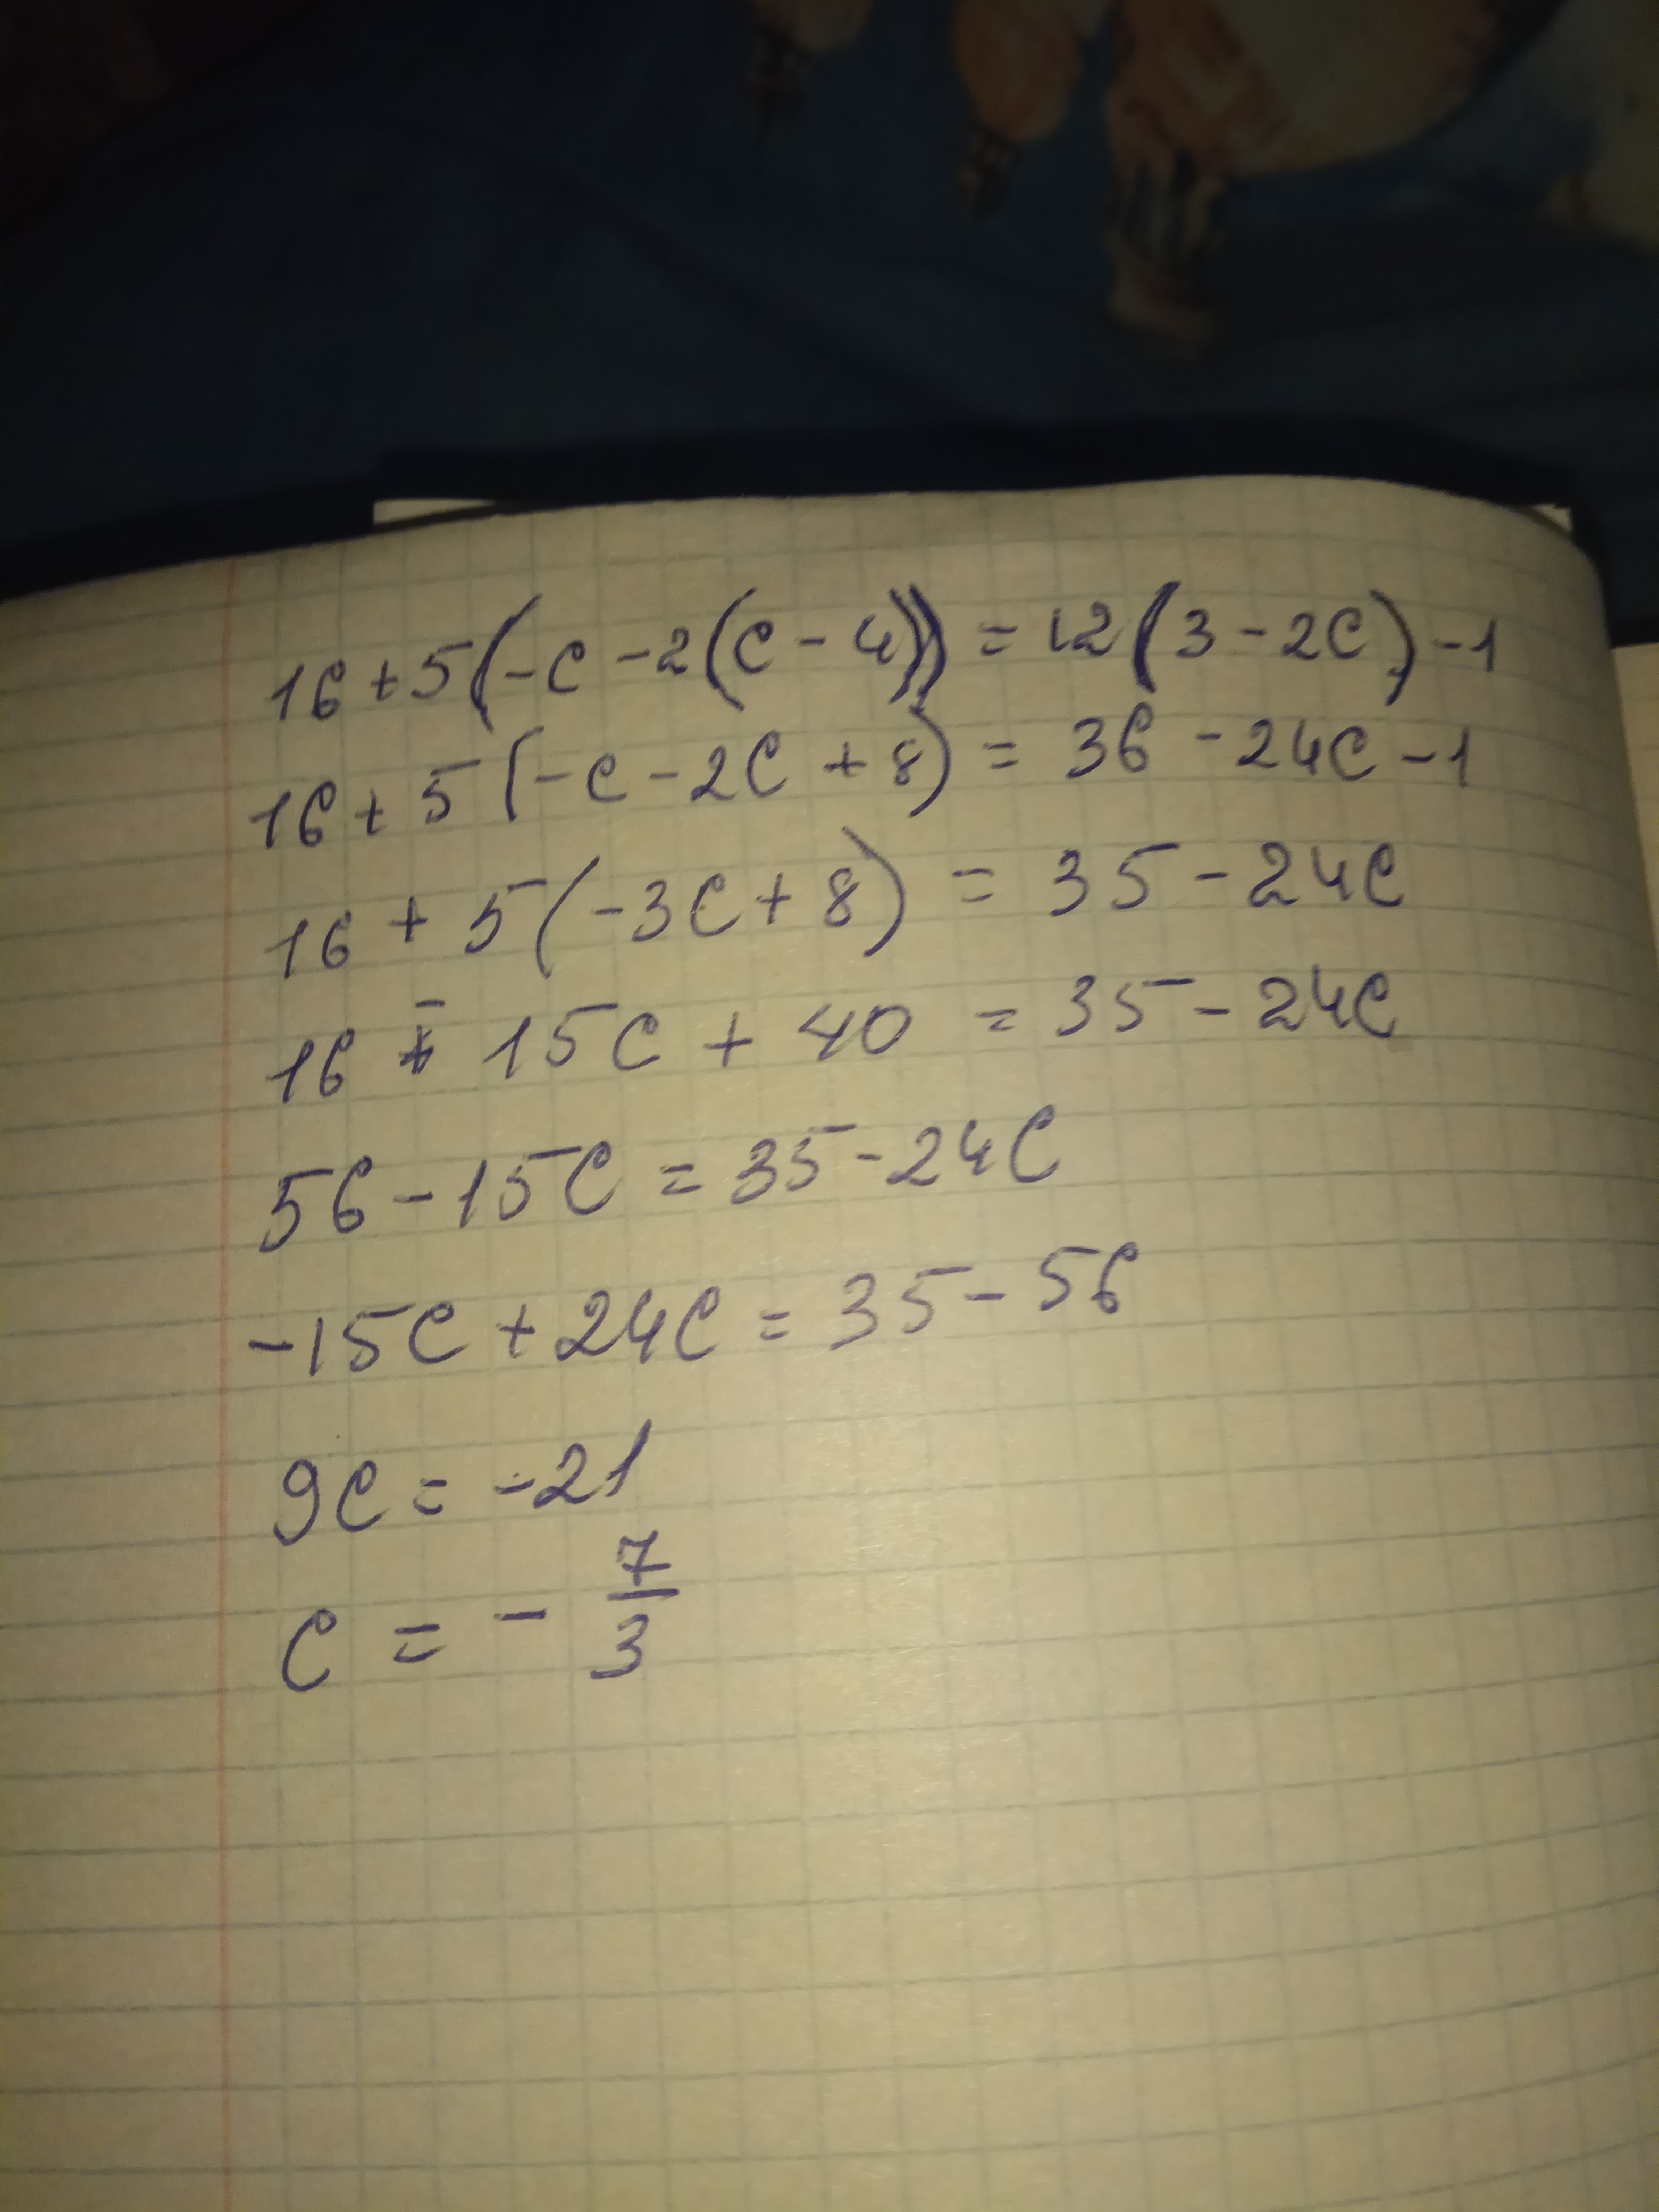 16+5(-c-2(c-4))=12(3-2c)-1
16+5(-c-2c+8)=36-24c-1
16+5(-3c+8)=35-24c
16-15c+40=35-24c
56-15c=35-24c
-15c+24c=35-56
9c=-21
c=-7/3